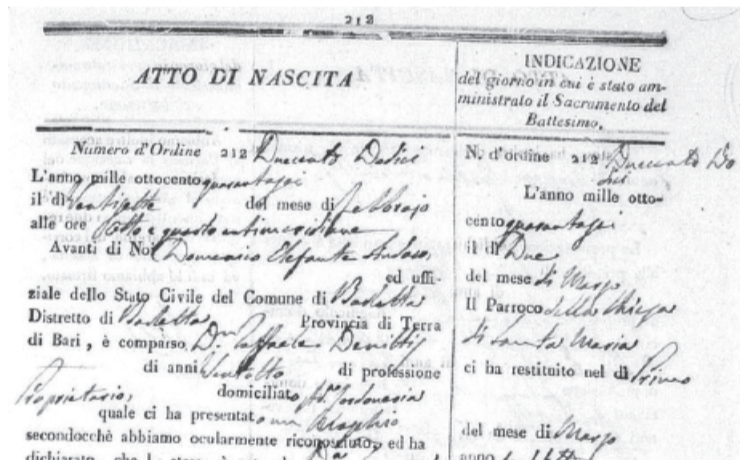 212
ATTO DI NASCITA
Numero d'Ordine 212 Duecento Dodici
L'anno mille ottocento quarantasei
il dì Ventisette del mese di Febbrajo
alle ore Sotto e quarto antimeridiane
Avanti di Noi Domenico Elefante Sindaco,
ed uffi-
ziale dello Stato Civile del Comune di Barletta
Distretto di Barletta Provincia di Terra
di Bari, è comparso Dn Raffaele Denittis
di anni Ventotto di professione
Proprietario, domiciliato
quale ci ha presentato un Maschio
secondocchè abbiamo ocularmente riconosciuto, ed ha
INDICAZIONE
del giorno in cui è stato am-
ministrato il Sacramento del
Battesimo.
N. d'ordine 212 Duecento Do
dici
L'anno mille otto-
cento quarantasei
il dì Due
del mese di Marzo
Il Parroco della Chiesa
di Santa Maria
ci ha restituito nel dì Primo
del mese di Marzo
anno